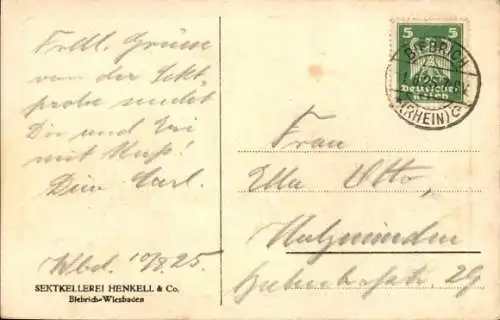 Frdl. Grüsse
von der Sekt-
probe sendet
Dir und
mit Kuß!
Dein Carl.
Wbd. 10/8.25.
SEKTKELLEREI HENKELL & Co.
Biebrich-Wiesbaden
5 5
Deutsches
Reich
BIEBRICH
(RHEIN)
Frau
Ella Otto,
Holzminden
29